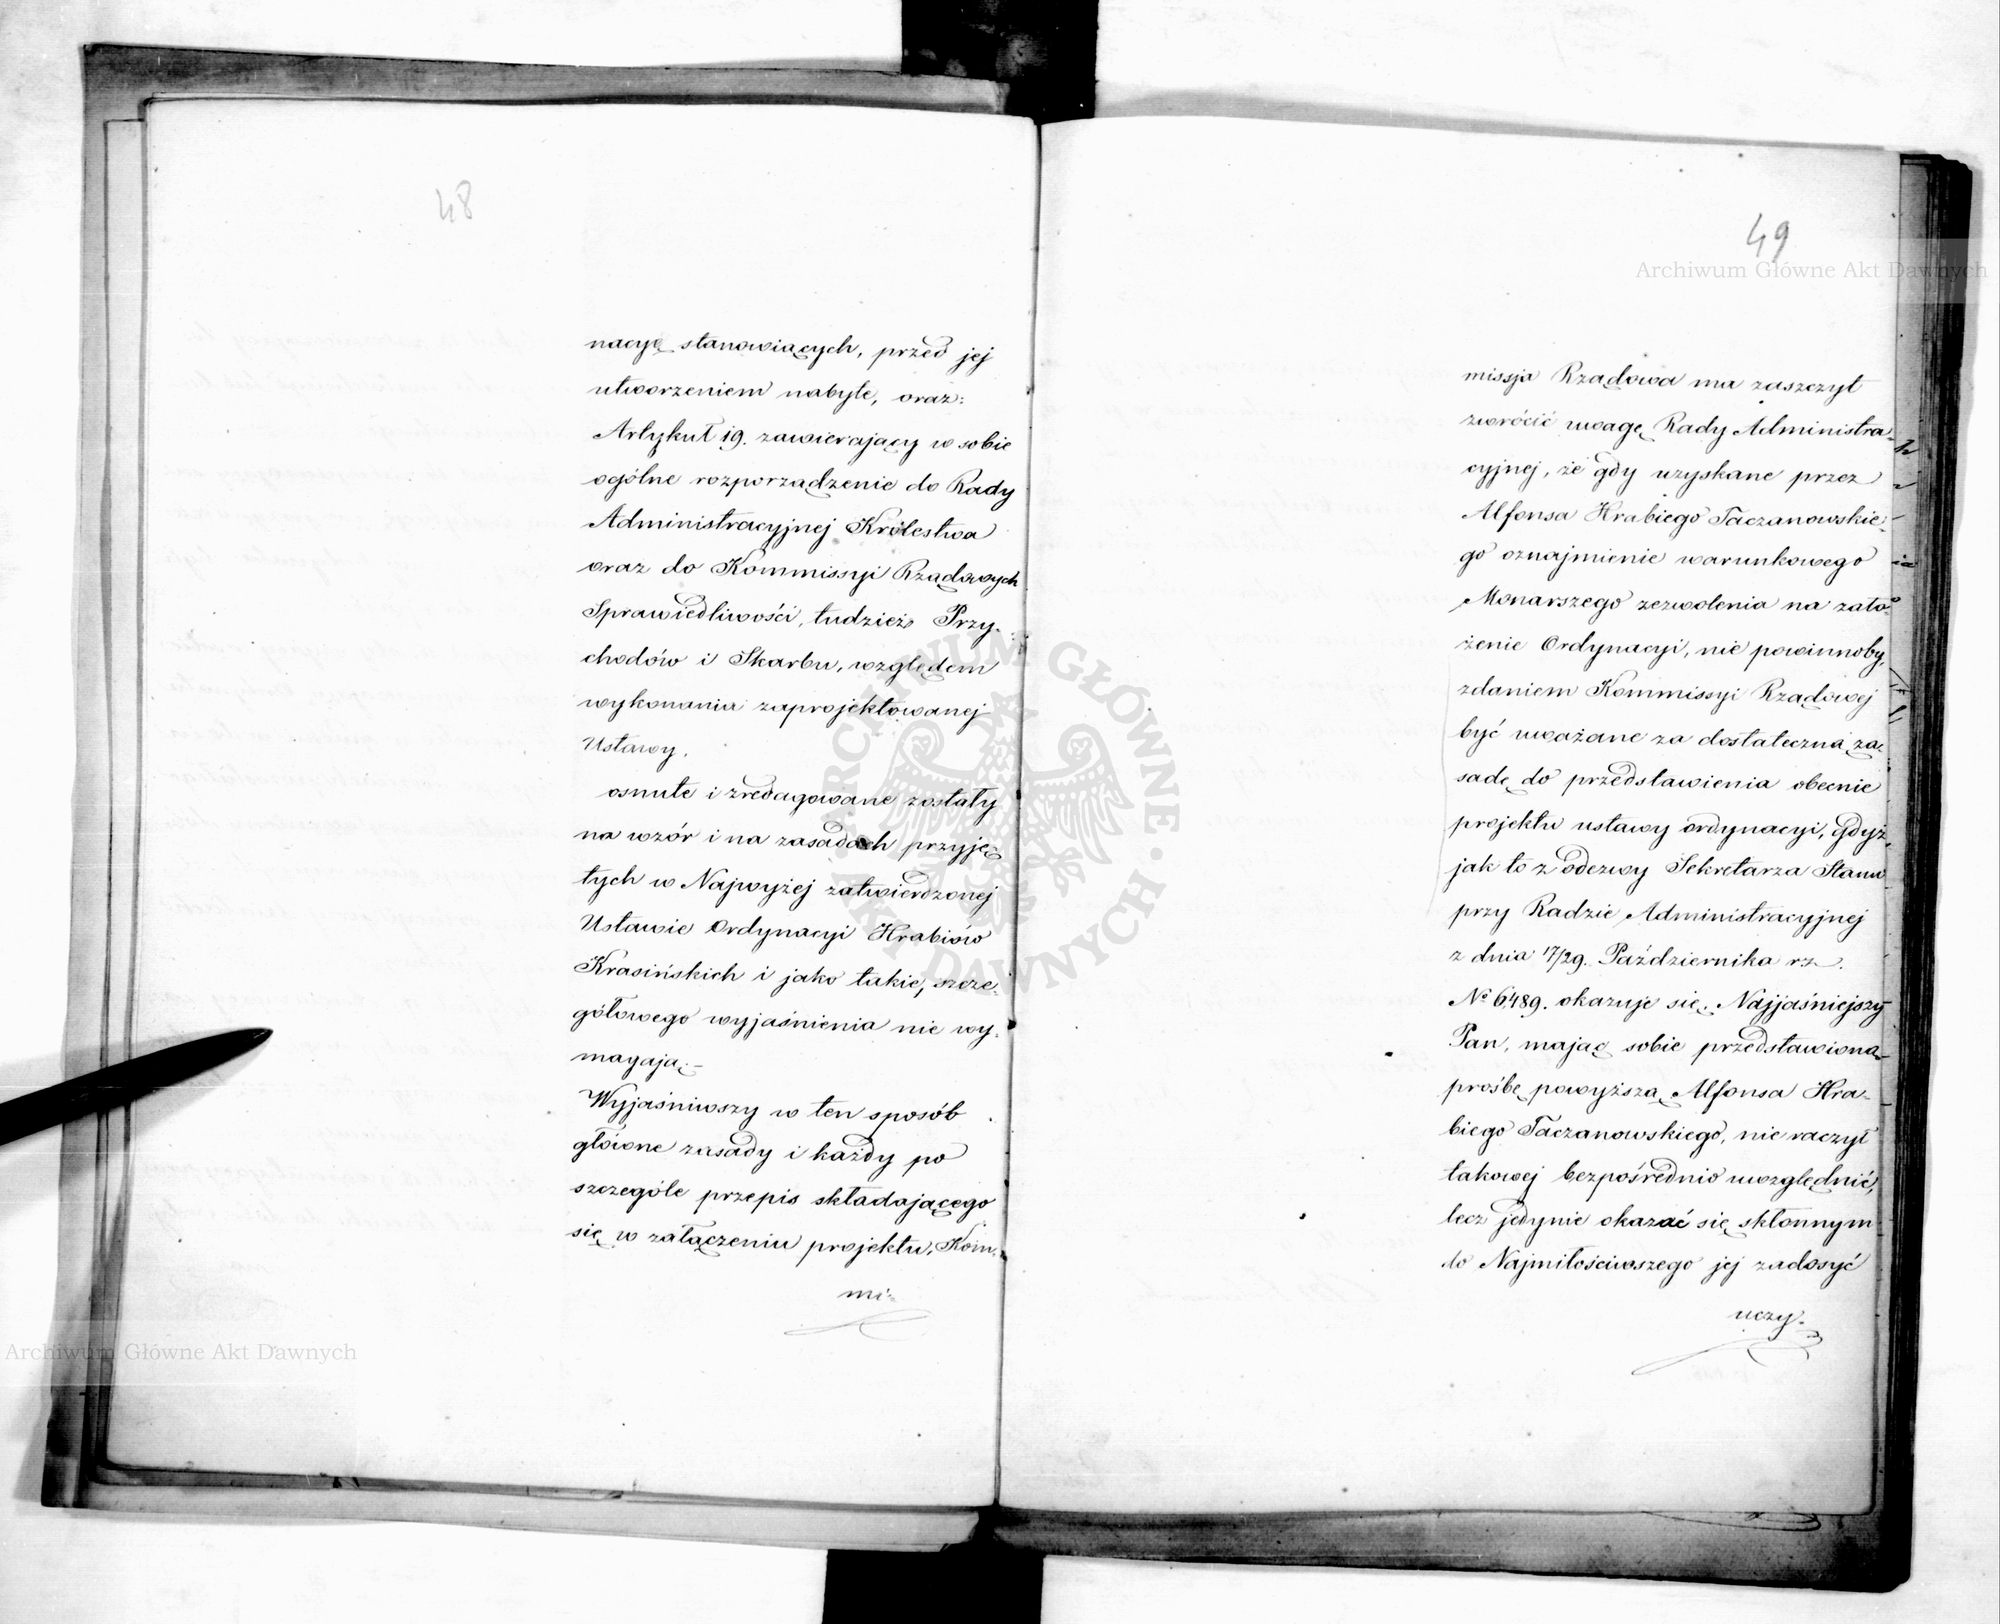 48
nacyę stanowiących, przed jej
utworzeniem nabyte, oraz:
Artykuł 19. zawierający w sobie
ogólne rozporządzenie do Rady
Administracyjnej Królestwa
oraz do Kommissyi Rządowych
Sprawiedliwości, tudzież Przy-
chodów i Skarbu, względem
wykonania zaprojektowanej
Ustawy.
osnute i zredagowane zostały
na wzór i na zasadach przyję-
tych w Najwyżej zatwierdzonej
Ustawie Ordynacyi Hrabiów
Krasińskich i jako takie, szcze-
gółowego wyjaśnienia nie wy-
magają.-
Wyjaśniwszy w ten sposób
główne zasady i każdy po
szczególe przepis składającego
się w załączeniu projektu, Kom-
mi-
49
missja Rządowa ma zaszczyt
zwrócić uwagę Rady Administra-
cyjnej, że gdy uzyskane przez
Alfonsa Hrabiego Taczanowskie-
go oznajmienie warunkowego
Monarszego zezwolenia na zało-
żenie Ordynacyi, nie powinnoby,
zdaniem Kommissyi Rządowej
być uważane za dostateczną za-
sadę do przedstawienia obecnie
projektu ustawy ordynacyi, gdyż,
jak to z odezwy Sekretarza Stanu
przy Radzie Administracyjnej
z dnia 17/29. Października r.z.
№ 6489. okazuje się, Najjaśniejszy
Pan, mając sobie przedstawioną
prośbę powyższą Alfonsa Hra-
biego Taczanowskiego, nie raczył
takowej bezpośrednio uwzględnić,
lecz jedynie okazać się skłonnym
do Najmiłościwszego jej zadosyć
uczy-
Archiwum Główne Akt Dawnych
Archiwum Główne Akt Dawnych
ARCHIWUM GŁÓWNE AKT DAWNYCH